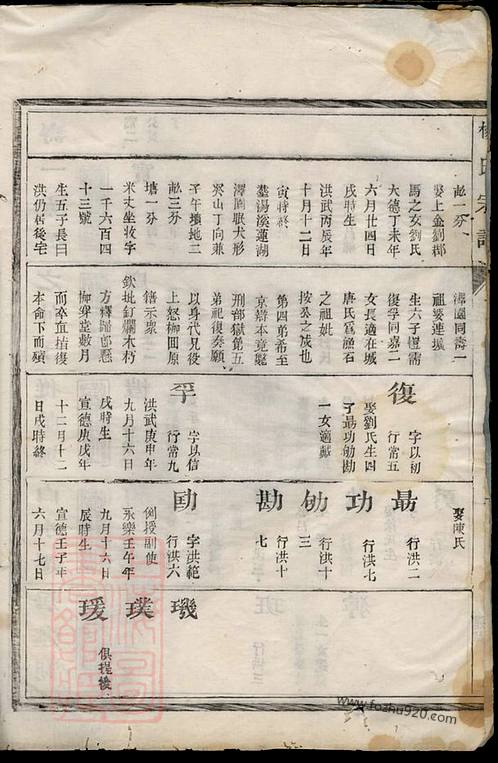 氏宗譜
畝一分
娶上金劉郡
馬之女劉氏
大德丁未年
六月廿四日
戌時生
洪武丙辰年
十月十二日
寅時終
墓湯溪蓮湖
澤園眠犬形
來山丁向兼
子午墳地二
畝三分
塘一分
米丈坐牧字
一千六百四
十三號
生五子長曰
洪仍居後宅
園同壽一
祖婆連壙
生六子恆需
復孚同嘉二
女長適在城
唐氏爲漁石
之祖妣
按癸之减也
第四弟希至
京辯本竟斃
刑部獄第五
弟祀復奏願
以身代兄役
上怒柳囬原
籍示衆
欽批釘爛木朽
方釋歸部懸
柳穿堂數月
而卒直植復
本命下而殞
復 字以初
行常五
娶劉氏生四
子勗功劬勘
一女適戴
孚 字以信
行常九
洪武庚申年
九月十六日
戌時生
宣德庚戌年
十二月十二
日戌時終
娶陳氏
勗 行洪二
功 行洪七
劬 行洪十三
勘 行洪十七
勖 字洪範
行洪六
例授副使
永樂壬午年
九月十六日
辰時生
宣德壬子年
六月十七日
璣
璞
瑗
俱提後
www.fozhu920.com